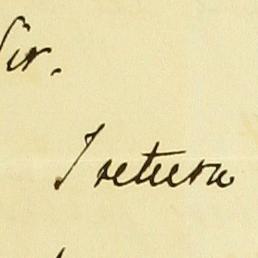 Sir.
I return